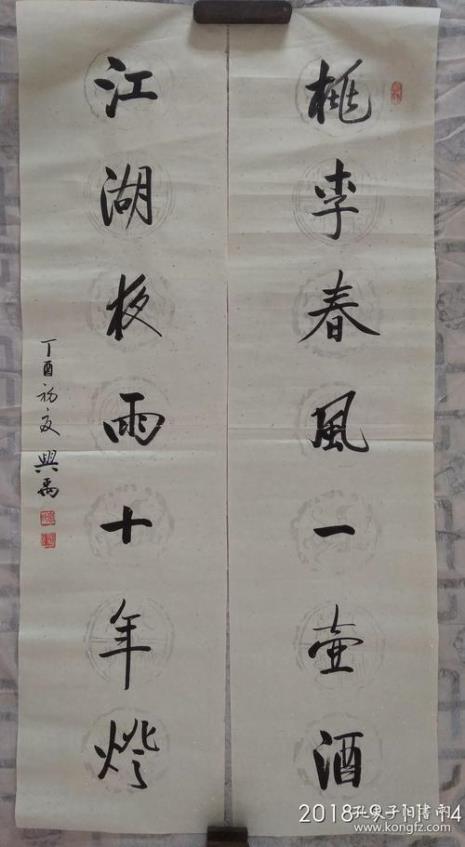 桃李春風一壺酒
江湖夜雨十年燈
丁酉初夏興禹
2018 9 11 14
孔夫子旧書网
www.kongfz.com